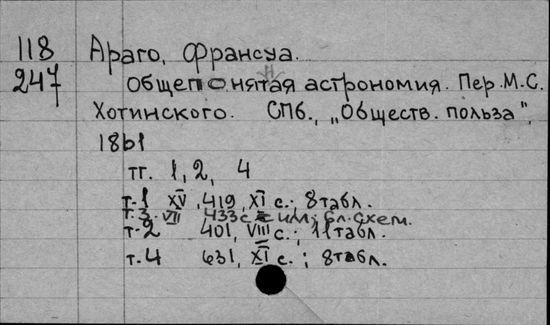 118 Араго, Франсуа.
247 Общепонятая астрономия. Пер. М.С.
Хотинского. СПб., „Обществ. польза",
1861
тт. 1, 2, 4
т.1 XV, 419, XI с.; 8табл.
т.3 VII 433с илл; 6л.схем.
т.2 401, VIII с.; 11табл.
т.4 631, XI с.; 8табл.